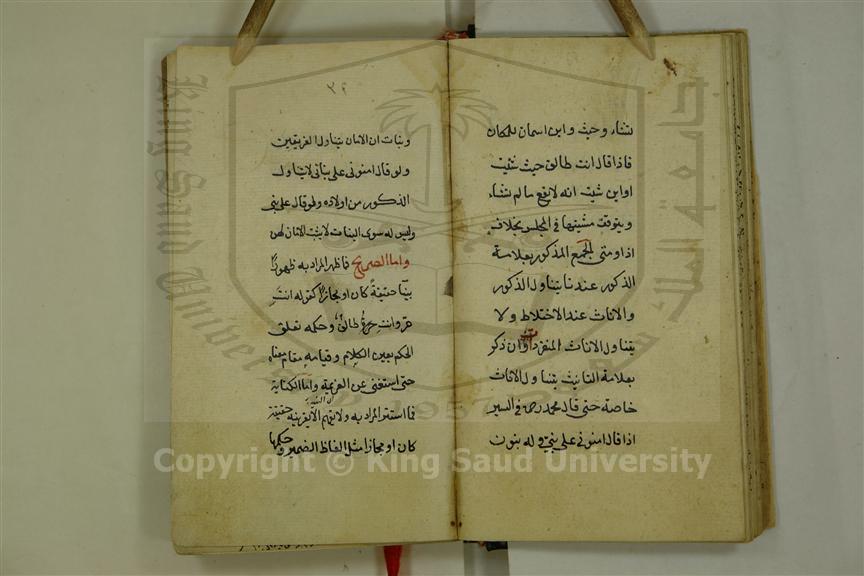 تشاء وحيث واين اسمان للمكان
فاذا قال انت طالق حيث شئت
او اين شئت انه لا يقع ما لم تشاء
ويتوقف مشيتها في المجلس بخلاف
اذا ومتى الجمع المذكور بعلامة
الذكور عندنا يتناول الذكور
والاناث عند الاختلاط ولا
يتناول الاناث المنفردات وان ذكر
بعلامة التانيث يتناول الاناث
خاصة حتى قال محمد رحمه في السير
اذا قال امنوني على بني وله بنون
٣٢
وبنات ان الامان يتناول الفريقين
ولو قال امنوني على بناتي لا يتناول
الذكور من اولاده ولو قال على بني
وليس له سوى البنات لا يثبت الامان لهن
واما الصريح فما ظهر المراد به ظهورا
بينا حقيقة كان او مجازا كقوله انت
حر وانت حرة طالق وحكمه تعلق
الحكم بعين الكلام وقيامه مقام معناه
حتى استغنى عن العزيمة واما الكناية
فما استتر المراد به ولا يفهم الا بقرينة حقيقة
كان او مجازا مثل الفاظ الضمير وحكمها
جامعة الملك سعود
King Saud University
1957
Copyright © King Saud University